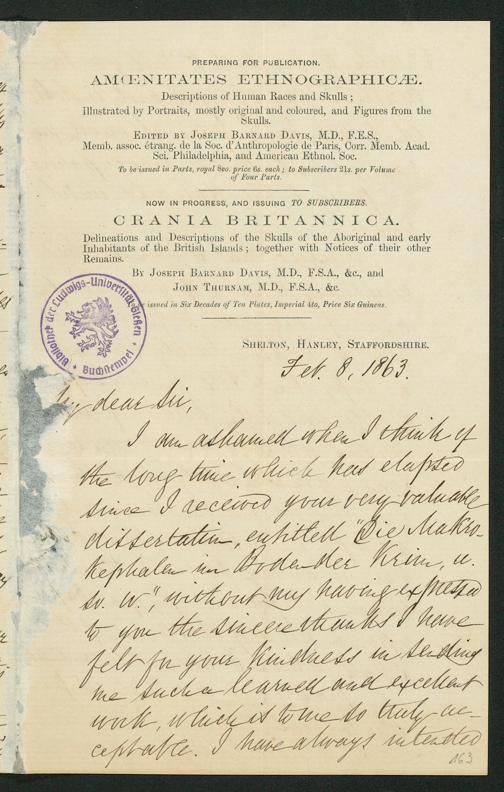 PREPARING FOR PUBLICATION.
AMŒNITATES ETHNOGRAPHICÆ.
Descriptions of Human Races and Skulls;
Illustrated by Portraits, mostly original and coloured, and Figures from the
Skulls.
EDITED BY JOSEPH BARNARD DAVIS, M.D., F.E.S.,
Memb. assoc. étrang. de la Soc. d'Anthropologie de Paris, Corr. Memb. Acad.
Sci. Philadelphia, and American Ethnol. Soc.
To be issued in Parts, royal 8vo. price 6s. each; to Subscribers 21s. per Volume
of Four Parts.
NOW IN PROGRESS, AND ISSUING TO SUBSCRIBERS.
CRANIA BRITANNICA.
Delineations and Descriptions of the Skulls of the Aboriginal and early
Inhabitants of the British Islands; together with Notices of their other
Remains.
BY JOSEPH BARNARD DAVIS, M.D., F.S.A., &c., and
JOHN THURNAM, M.D., F.S.A., &c.
issued in Six Decades of Ten Plates, Imperial 4to, Price Six Guineas.
Bibliothek der Ludwigs-Universität Gießen
Buchstempel
SHELTON, HANLEY, STAFFORDSHIRE.
Feb. 8, 1863.
My dear Sir,
I am ashamed when I think of
the long time which has elapsed
since I received your very valuable
dissertation, entitled "Die Makro-
kephalen im Boden der Krim, u.
s. w.", without my having expressed
to you the sincere thanks I have
felt for your kindness in sending
me such a learned and excellent
work, which is to me so truly ac-
ceptable. I have always intended
163